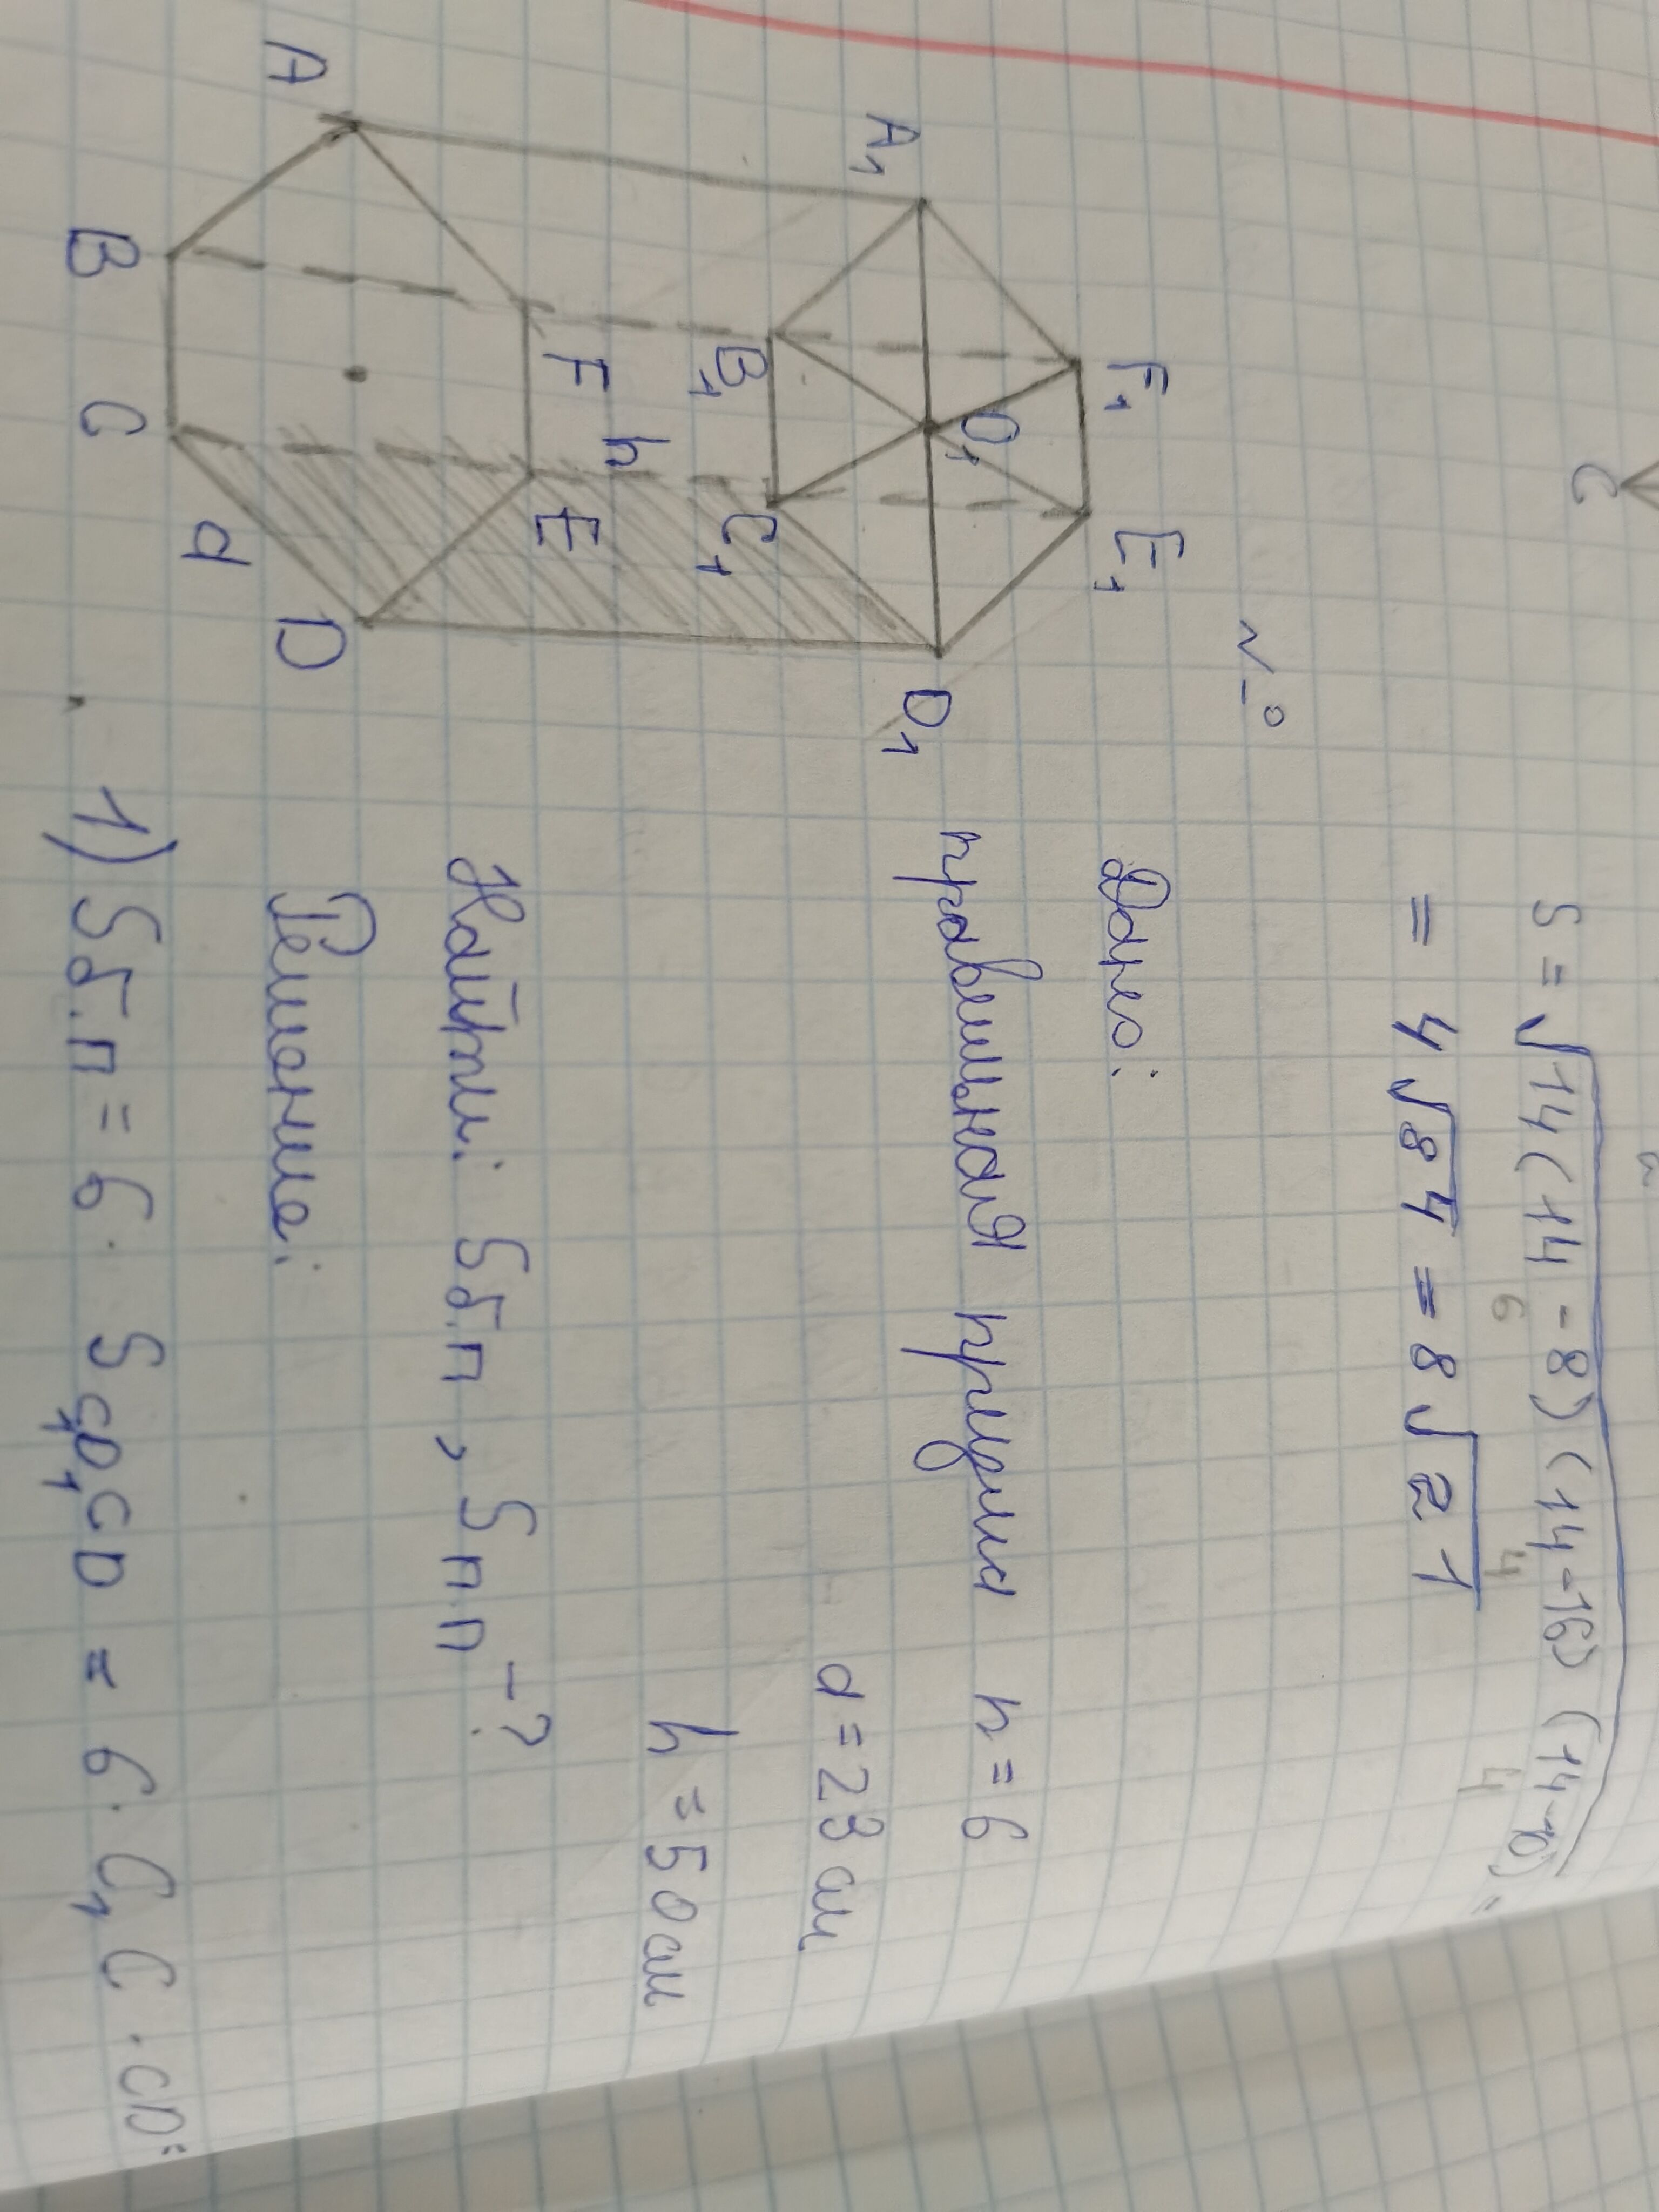 C
S = √14(14 - 8)(14 - 16)(14 - 10) =
6 4 4
= 4√84 = 8√21
№
Дано:
правильная призма n = 6
a = 23 см
h = 50 см
Найти: Sб.п, Sп.п - ?
Решение:
1) Sб.п = 6 · SC₁D₁CD = 6 · C₁C · CD =
A₁ F₁ E₁ D₁ O₁ B₁ C₁
A B C D E F h a